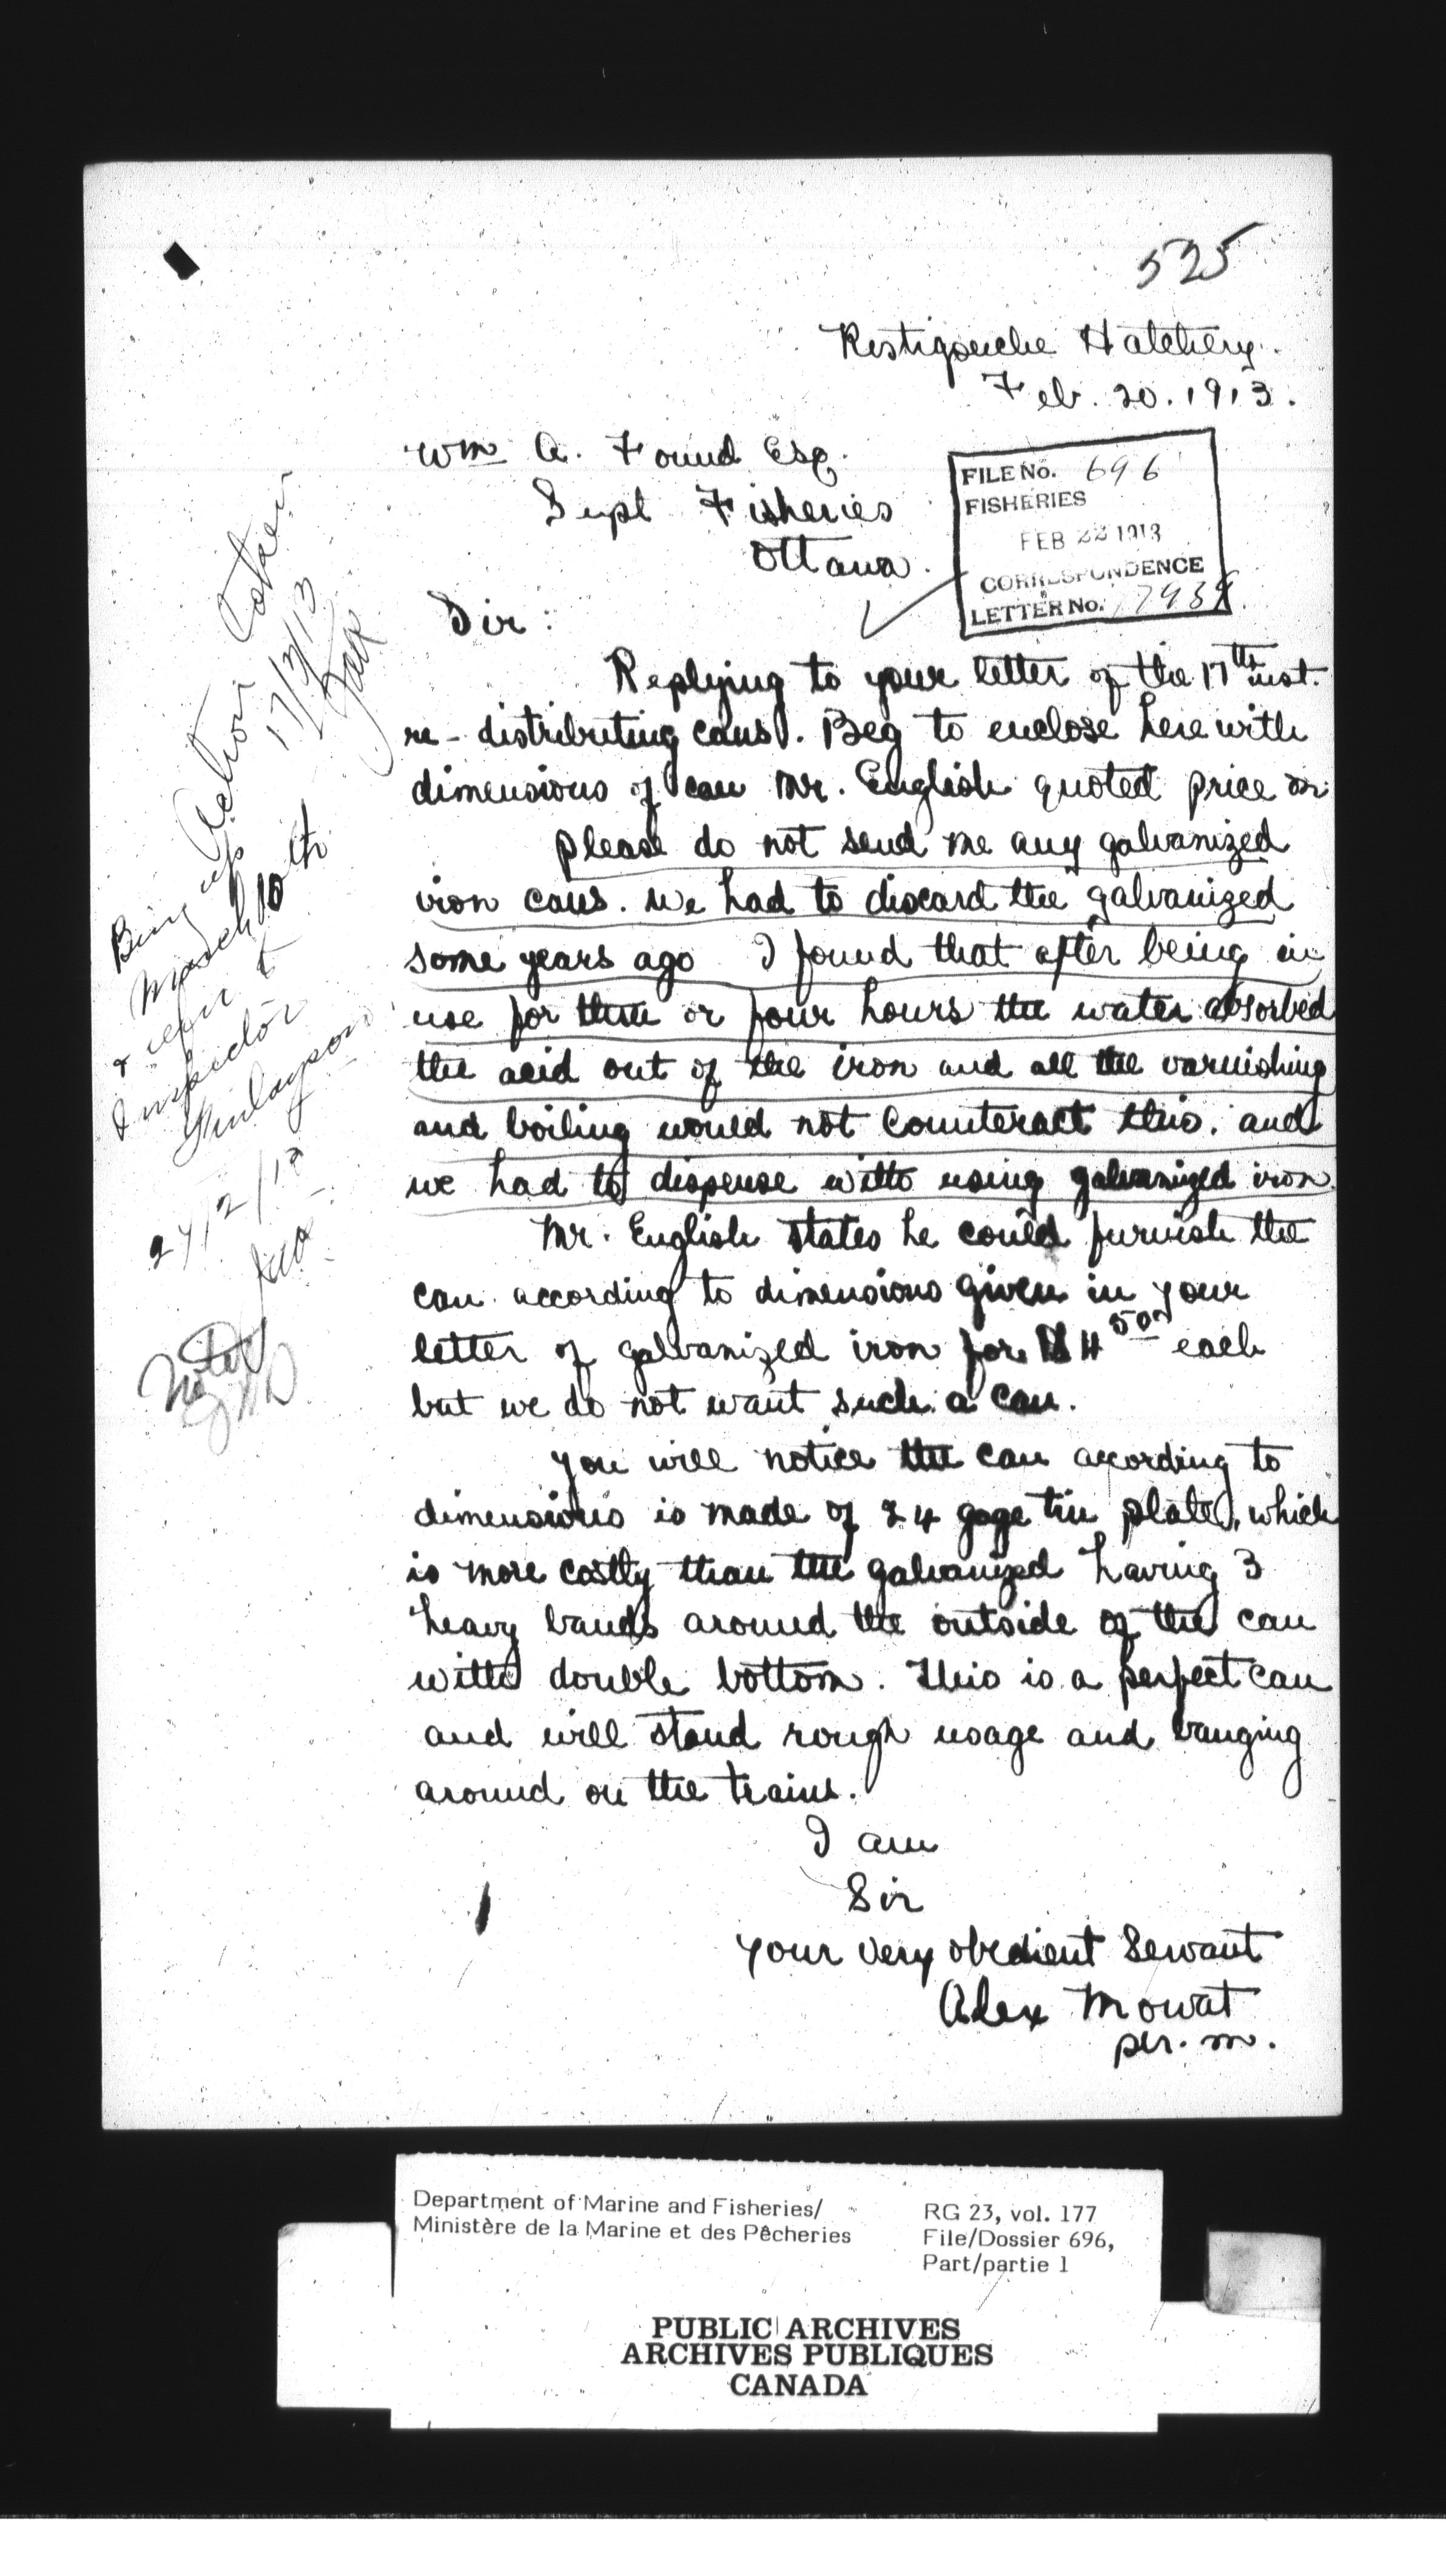 525
Restigouche Hatchery.
Feb. 20. 1913.
Wm A. Found Esq.
Supt Fisheries
Ottawa.
FILE No. 696
FISHERIES
FEB 22 1913
CORRESPONDENCE
LETTER No. 7939
Sir:
Replying to your letter of the 17th inst.
re- distributing cans. Beg to enclose herewith
dimensions of can Mr. English quoted price on
please do not send me any galvanized
iron cans. we had to discard the galvanized
some years ago I found that after being in
use for three or four hours the water absorbed
the acid out of the iron and all the varnishing
and boiling would not counteract this, and
we had to dispense with using galvanized iron.
Mr. English states he could furnish the
can according to dimensions given in your
letter of galvanized iron for $4 50 each
but we do not want such a can.
You will notice the can according to
dimensions is made of 24 goge tin plate, which
is more costly than the galvanized having 3
heavy bands around the outside of the can
with double bottom. This is a perfect can
and will stand rough usage and banging
around on the trains.
I am
Sir
Your very obedient Servant
Alex Mowat
per. m.
Action taken
17/3/13
Bring up
March 10th
& refer to
Inspector
Finlayson
24/2/13
Noted
Department of Marine and Fisheries/
Ministère de la Marine et des Pêcheries
RG 23, vol. 177
File/Dossier 696,
Part/partie 1
PUBLIC ARCHIVES
ARCHIVES PUBLIQUES
CANADA